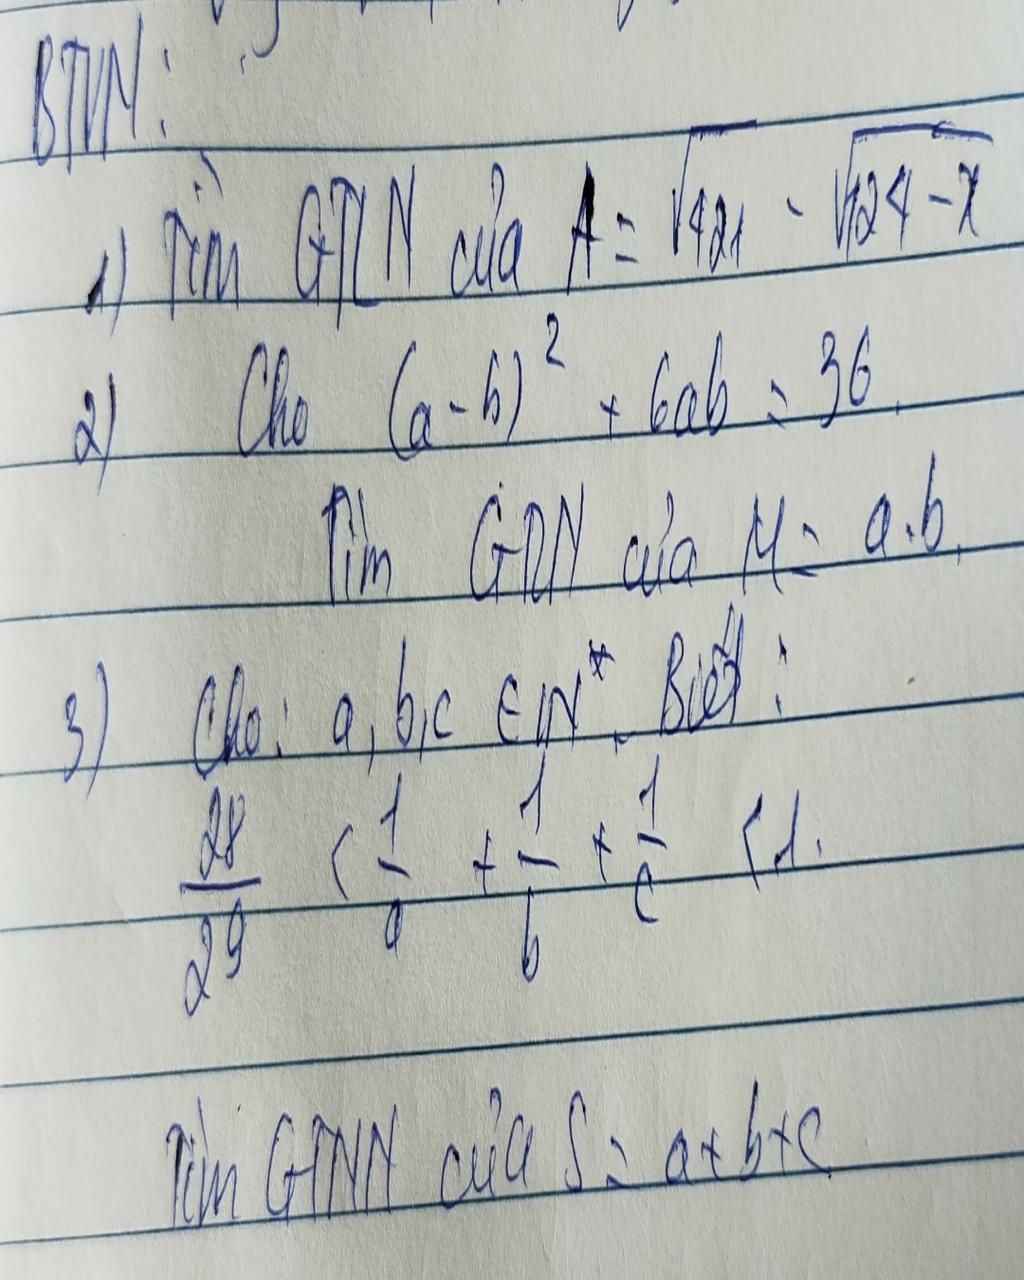 BTVN:
1) Tìm GTLN của A = √421 - √124-x
2) Cho (a-b)² + 6ab = 36.
Tìm GTLN của M = a.b.
3) Cho: a,b,c ∈ IN*. Biết:
28/29 < 1/a + 1/b + 1/c < 1.
Tìm GTNN của S = a+b+c